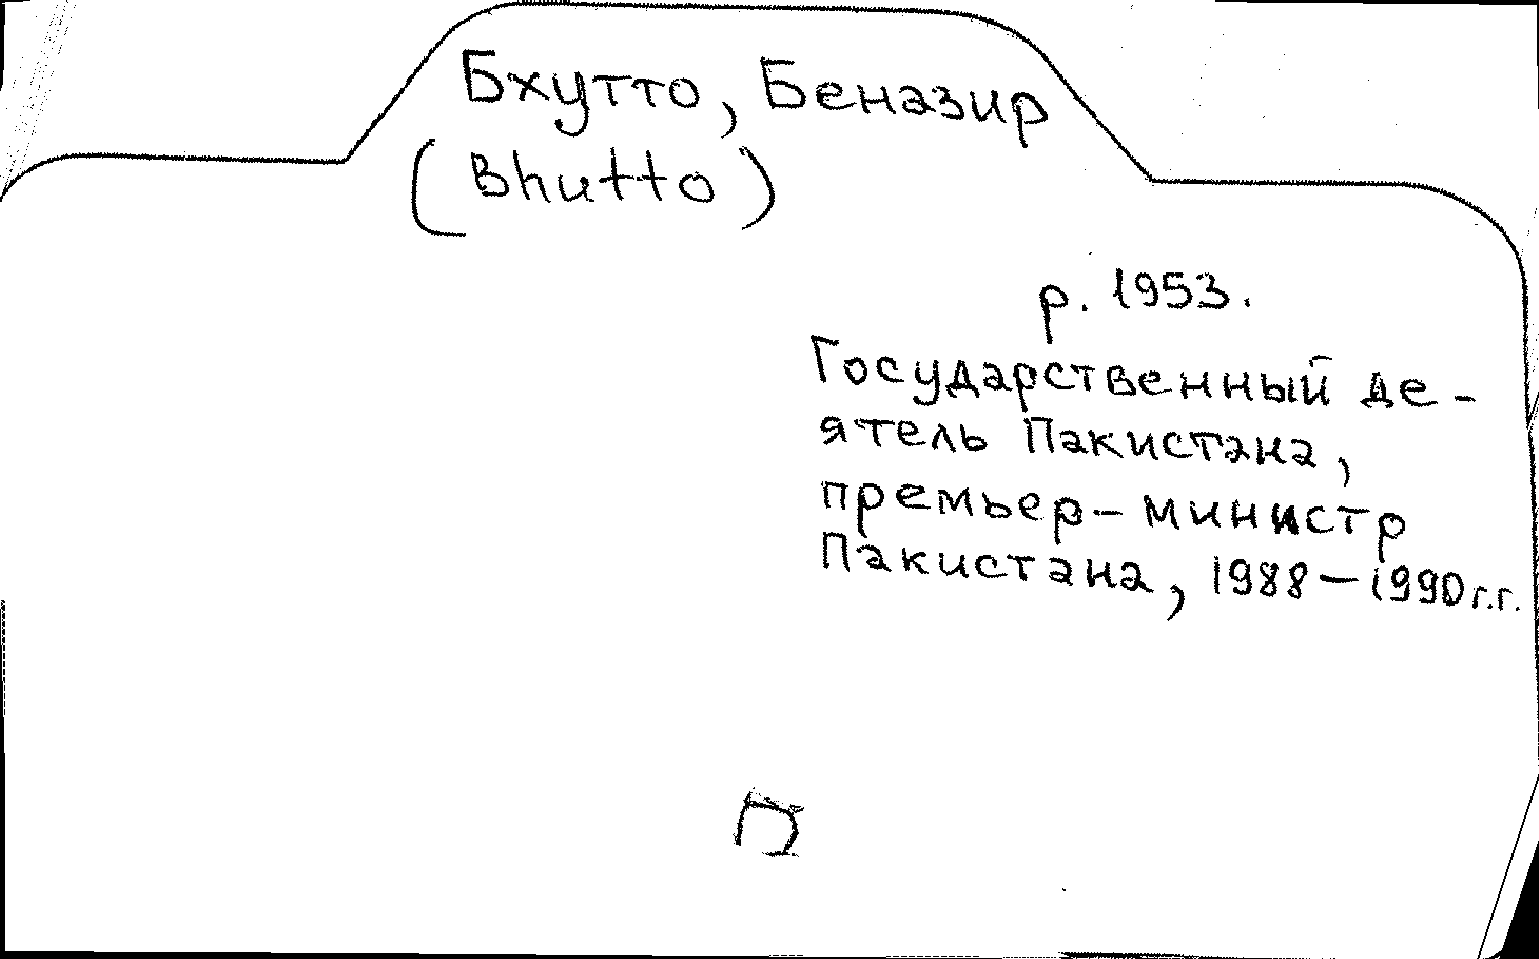 Бхутто, Беназир
(Bhutto)
р. 1953.
Государственный де-
ятель Пакистана,
премьер-министр
Пакистана, 1988-1990 г.г.